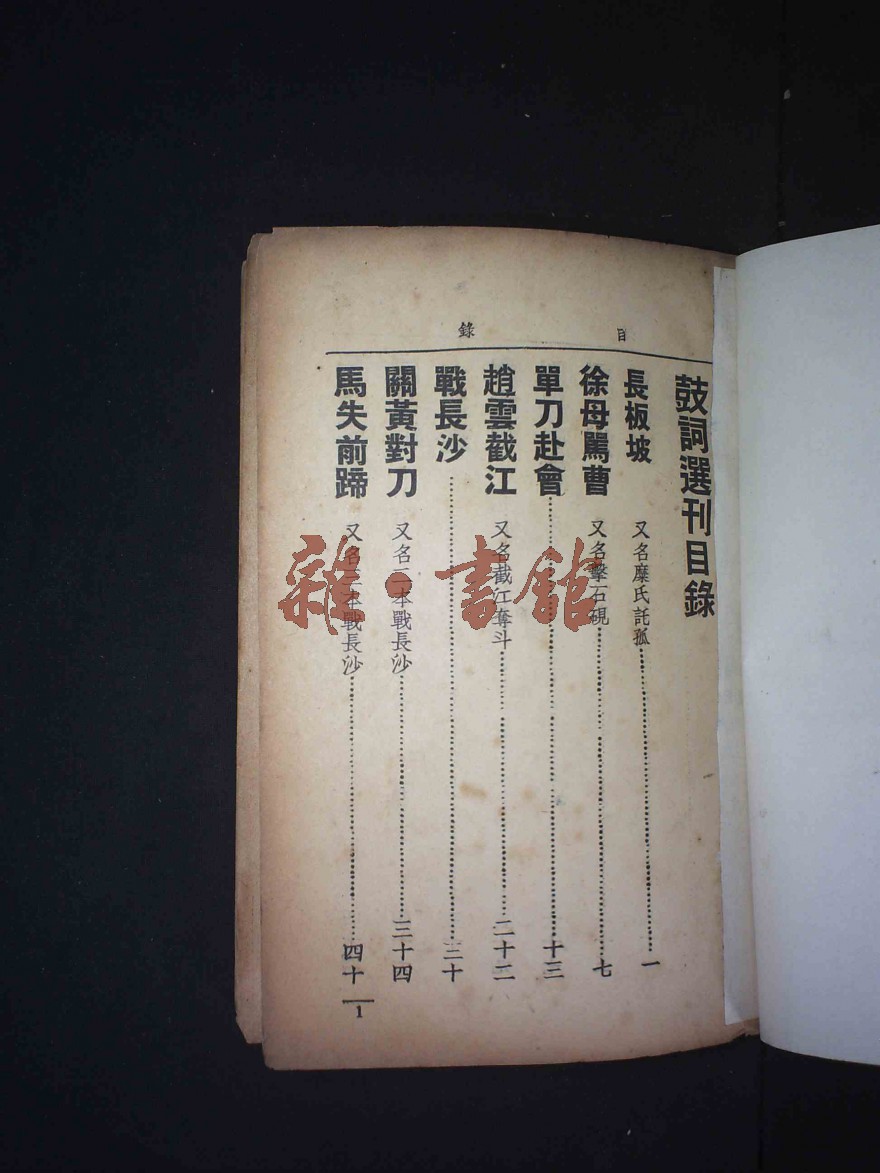 目錄
鼓詞選刊目錄
長板坡 又名糜氏託孤 一
徐母罵曹 又名擊石硯 七
單刀赴會 十三
趙雲截江 又名截江奪斗 二十二
戰長沙 三十
關黃對刀 又名二本戰長沙 三十四
馬失前蹄 又名三本戰長沙 四十
1
雜·書館